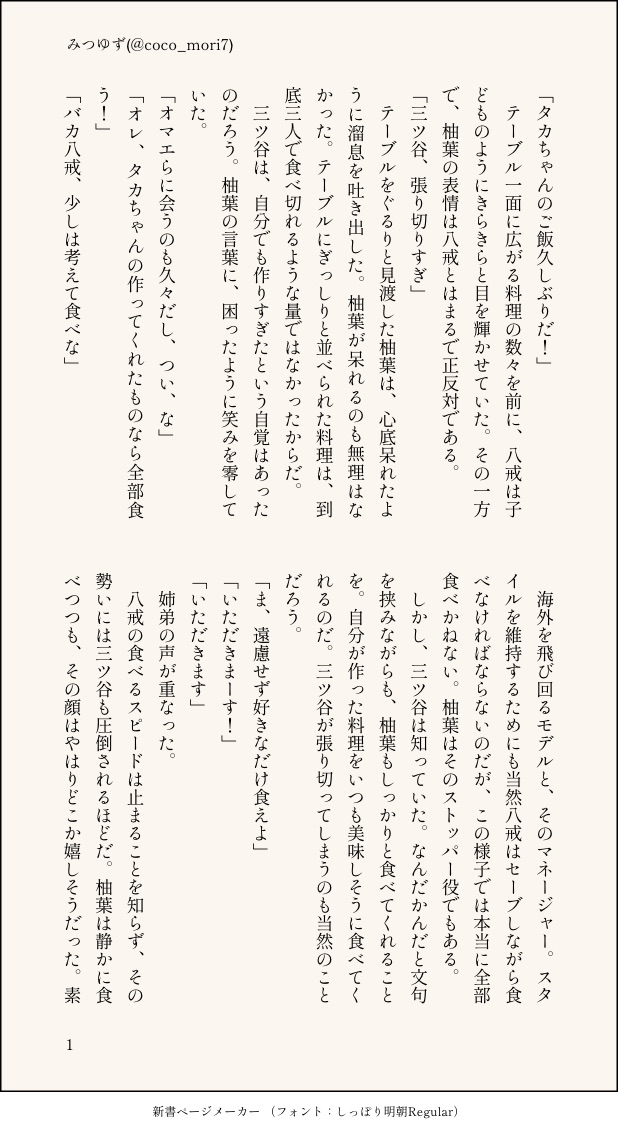 みつゆず(@coco_mori7)
「タカちゃんのご飯久しぶりだ！」
　テーブル一面に広がる料理の数々を前に、八戒は子
どものようにきらきらと目を輝かせていた。その一方
で、柚葉の表情は八戒とはまるで正反対である。
「三ツ谷、張り切りすぎ」
　テーブルをぐるりと見渡した柚葉は、心底呆れたよ
うに溜息を吐き出した。柚葉が呆れるのも無理はな
かった。テーブルにぎっしりと並べられた料理は、到
底三人で食べ切れるような量ではなかったからだ。
　三ツ谷は、自分でも作りすぎたという自覚はあった
のだろう。柚葉の言葉に、困ったように笑みを零して
いた。
「オマエらに会うのも久々だし、つい、な」
「オレ、タカちゃんの作ってくれたものなら全部食
う！」
「バカ八戒、少しは考えて食べな」
　海外を飛び回るモデルと、そのマネージャー。スタ
イルを維持するためにも当然八戒はセーブしながら食
べなければならないのだが、この様子では本当に全部
食べかねない。柚葉はそのストッパー役でもある。
　しかし、三ツ谷は知っていた。なんだかんだと文句
を挟みながらも、柚葉もしっかりと食べてくれること
を。自分が作った料理をいつも美味しそうに食べてく
れるのだ。三ツ谷が張り切ってしまうのも当然のこと
だろう。
「ま、遠慮せず好きなだけ食えよ」
「いただきまーす！」
「いただきます」
　姉弟の声が重なった。
　八戒の食べるスピードは止まることを知らず、その
勢いには三ツ谷も圧倒されるほどだ。柚葉は静かに食
べつつも、その顔はやはりどこか嬉しそうだった。素
1
新書ページメーカー （フォント：しっぽり明朝Regular）